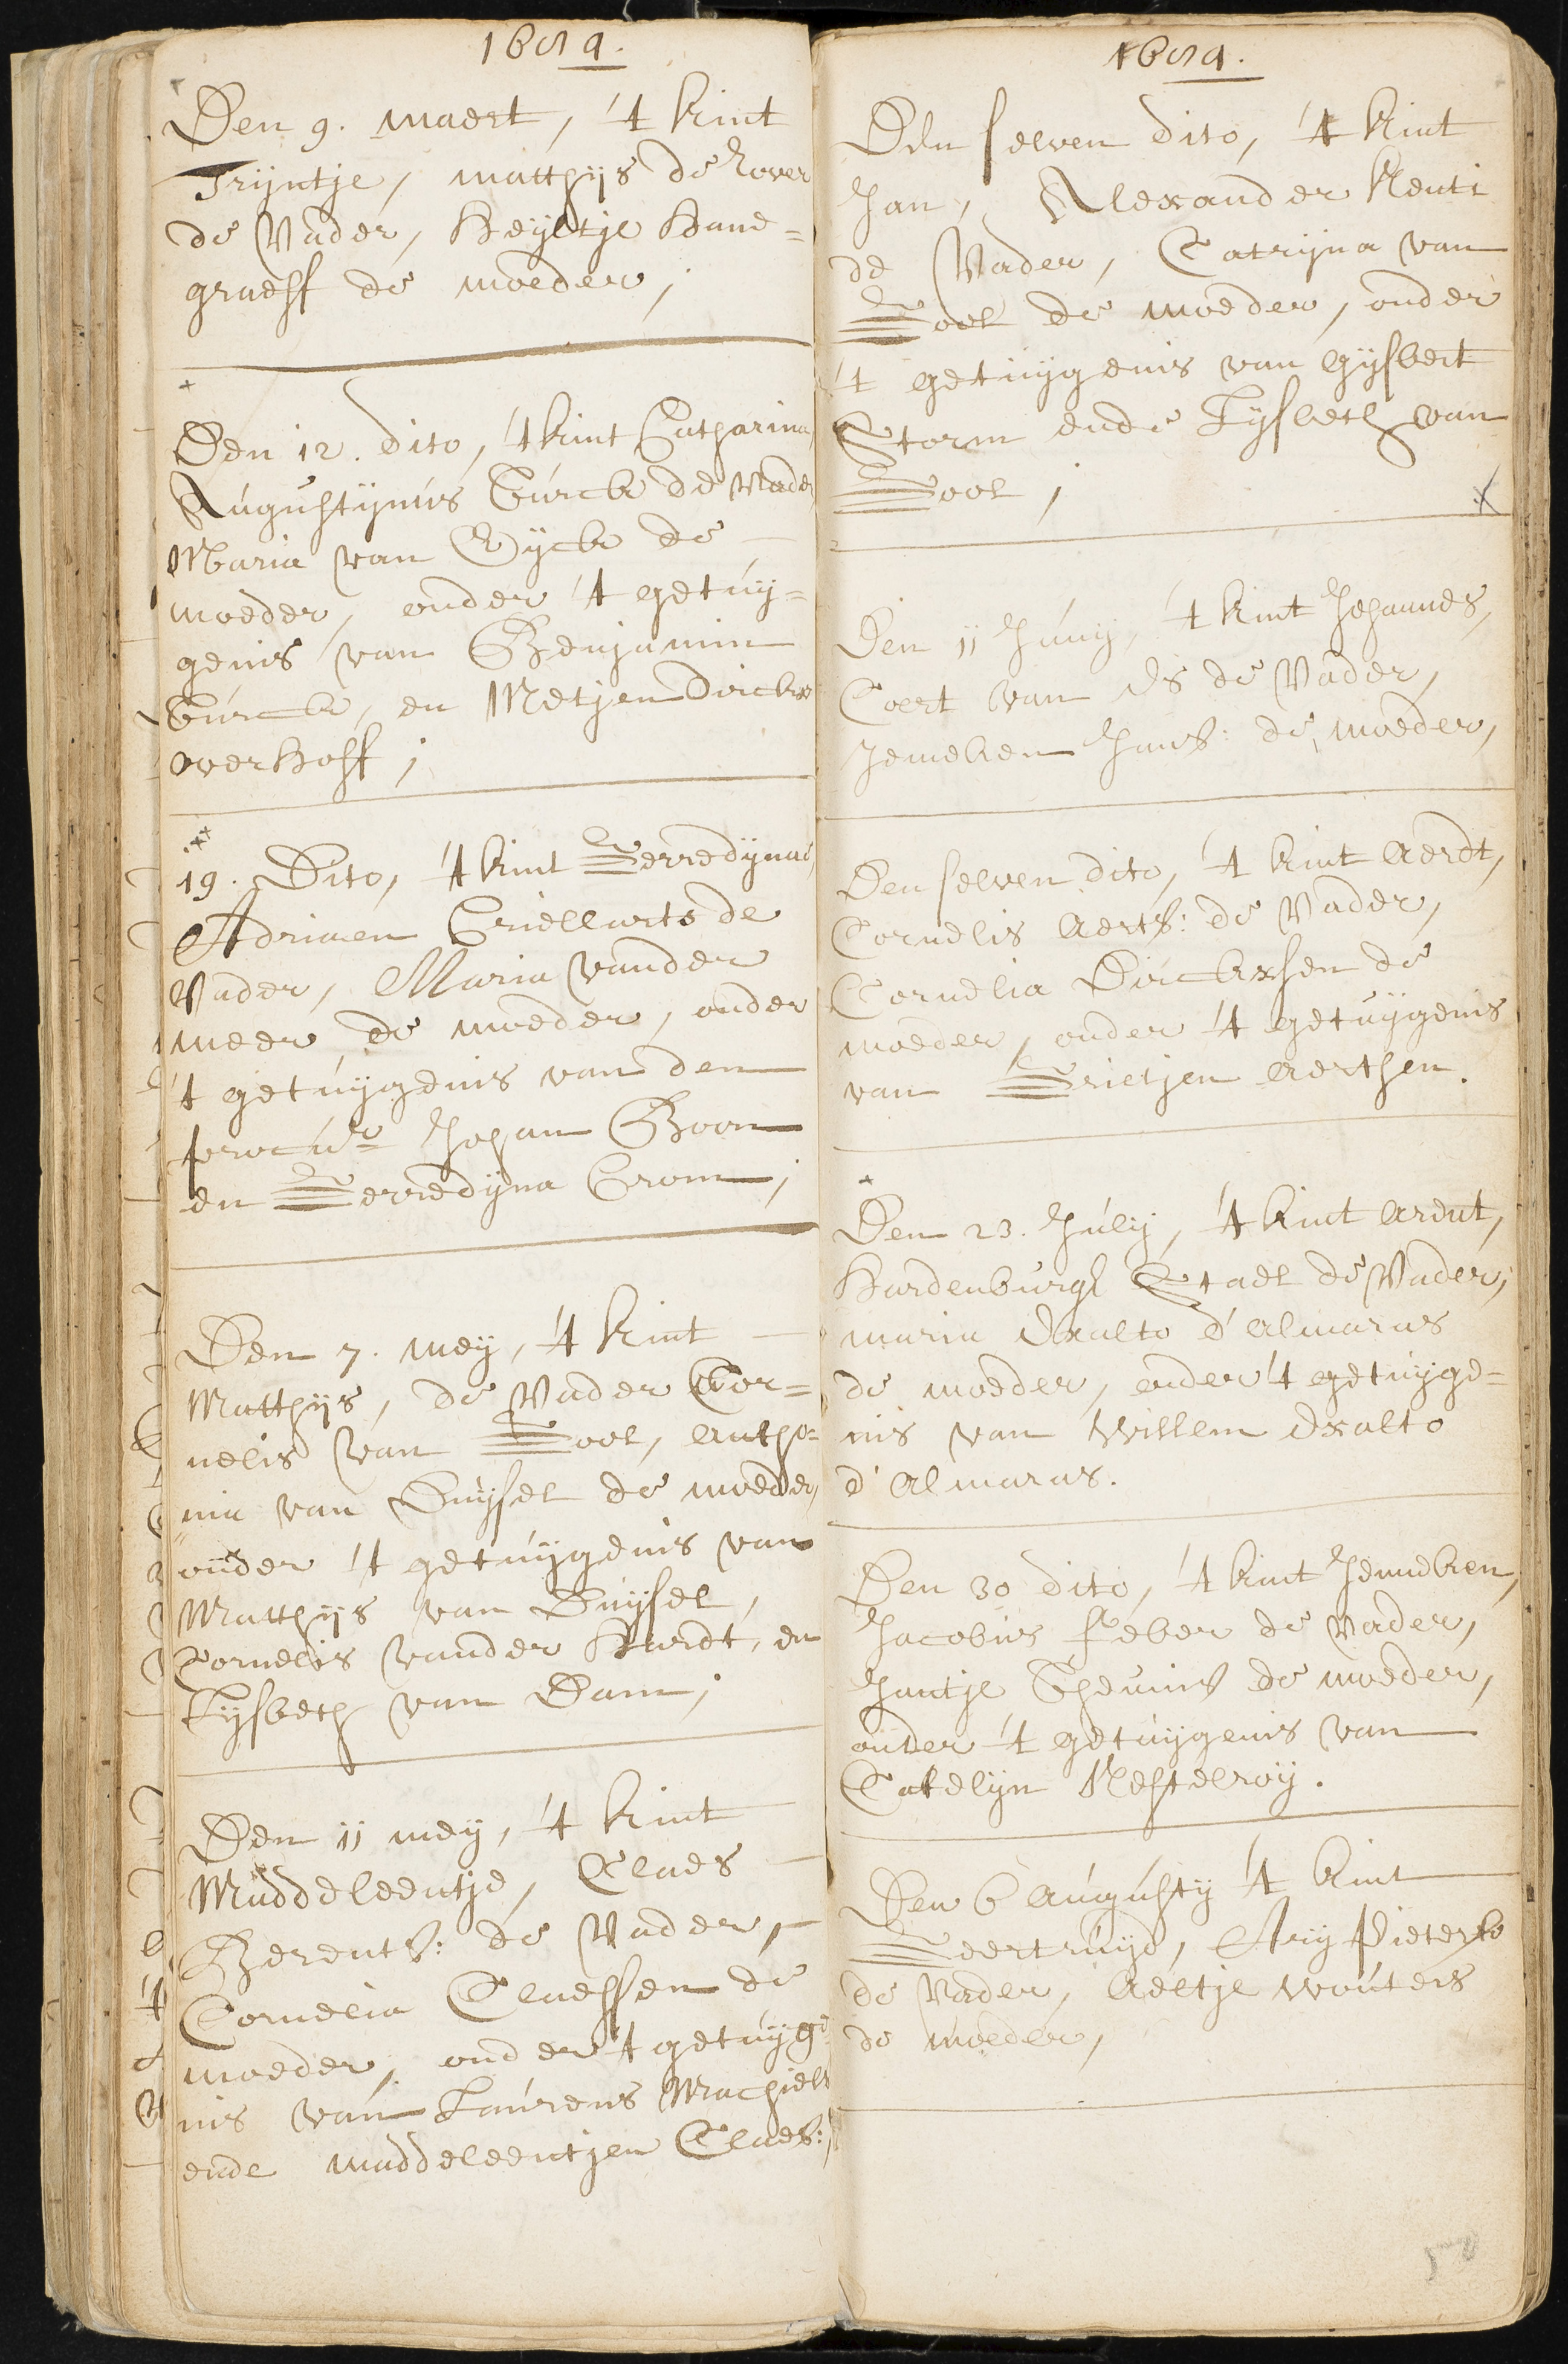 1684.
Den 9. maert, 't kint
Trijntje, matthijs de Rover
de Vader, Heyltje Hane=
graeff de moeder;
Den 12. dito, 't kint Catharina,
Augustijnus Curck de Vader
Maria van Eyck de
moeder, onder 't getuy=
genis van Benjamin
Curck, en Metjen Dircks
overhoff;
19. Dito, 't kint Gerredijna,
Adriaen Criellarts de
Vader, Maria vander
meer de moeder, onder
't getuijgenis van den
procur Johan Boon
en Gerredijna Crom;
Den 7. mey, 't kint
Matthijs, de Vader Cor=
nelis van Gool, antho=
nia van Duijsel de moeder,
onder 't getuijgenis van
Matthijs van Duijsel,
Cornelis vander Hardt, en
Lijsbeth van Dam;
Den 11 mey, 't kint
Maddeleentje, Claes
Berents: de Vader,
Cornelia Claessen de
moeder, onder 't getuyge
nis van Laurens Machiels
ende maddeleentjen Claes:,
1684.
Den selven dito, 't kint
Jan, Alexander Kenti
de Vader, Catrijna van
Gool de moeder, onder
't getuijgenis van Gijsbert
Storm ende Lijsbeth van
Gool;
Den 11 Junij, 't kint Johannes,
Coert van Es de Vader,
Jenneken Jans: de moeder,
Den selven dito, 't kint Aerdt,
Cornelis Aerts: de Vader,
Cornelia Dirckxsen de
moeder, onder 't getuijgenis
van Grietjen Aertsen.
Den 23. Julij, 't kint Arent,
Hardenburgh Stael de Vader,
maria Exalto d'Almaras
de moeder, onder 't getuijge=
nis van Willem Exalto
d'Almaras.
Den 30 dito, 't kint Jenneken,
Jacobus Feber de Vader,
Jantje Theunis de moeder,
onder 't getuijgenis van
Catelijn Nestelroij.
Den 6 Augusty 't kint
Geertruijd, Arij Pieterse
de Vader, Aeltje Wouters
de moeder,
50